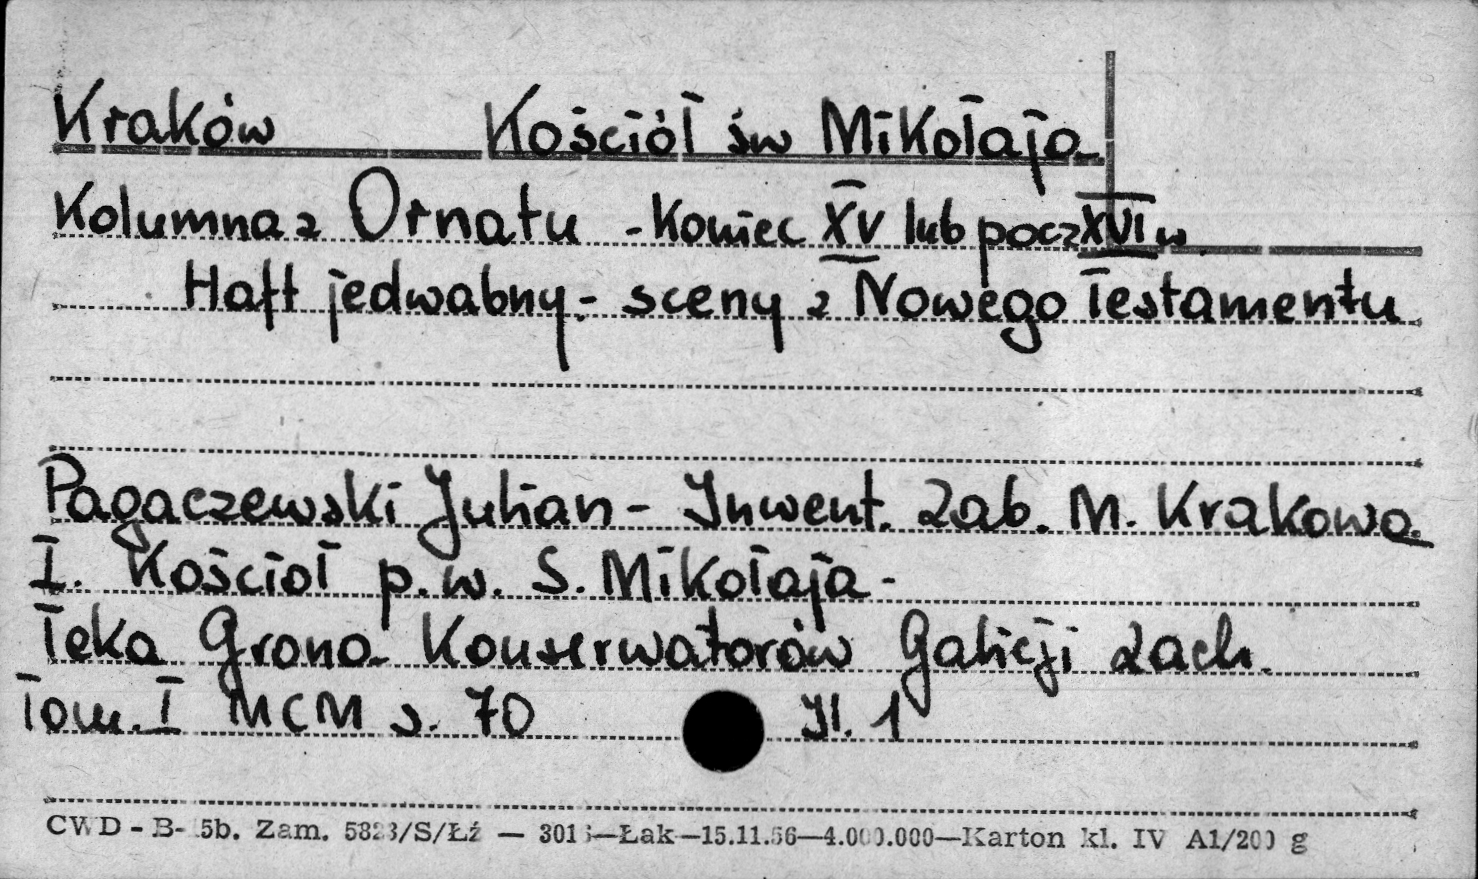 Kraków Kościół św Mikołaja
Kolumna z Ornatu - Koniec XV lub pocz XVI w
Haft jedwabny - sceny z Nowego Testamentu
Pagaczewski Julian - Inwent. Zab. M. Krakowa
I. Kościoł p.w. S. Mikołaja -
Teka Grona Konserwatorów Galicji Zach.
Tom. I MCM s. 70 Il. 1
CWD - B- 5b. Zam. /S/Łź — —Łak—15.11.56—4.000.000—Karton kl. IV A1/200 g